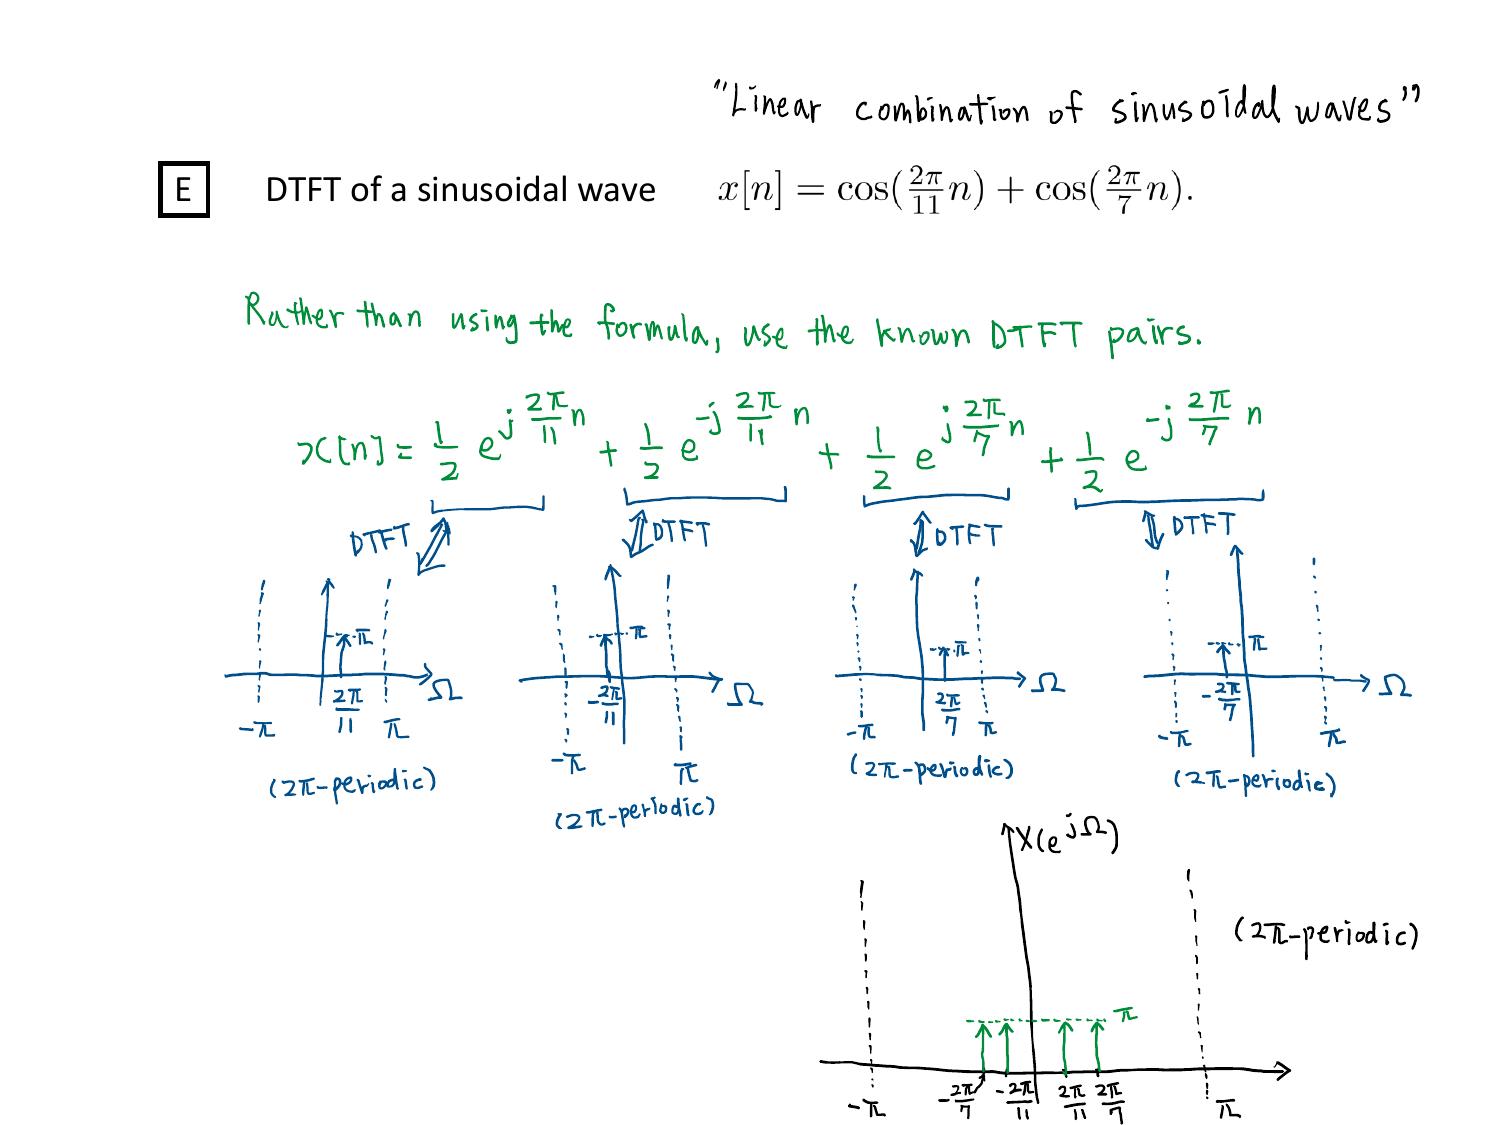 "Linear combination of sinusoidal waves"
E DTFT of a sinusoidal wave x[n] = cos(2π/11 n) + cos(2π/7 n).
Rather than using the formula, use the known DTFT pairs.
x[n] = 1/2 e^{j 2π/11 n} + 1/2 e^{-j 2π/11 n} + 1/2 e^{j 2π/7 n} + 1/2 e^{-j 2π/7 n}
DTFT DTFT DTFT DTFT
π π π π
Ω Ω Ω Ω
-π 2π/11 π -π -2π/11 π -π 2π/7 π -π -2π/7 π
(2π-periodic) (2π-periodic) (2π-periodic) (2π-periodic)
X(e^{jΩ})
(2π-periodic)
π
-π -2π/7 -2π/11 2π/11 2π/7 π